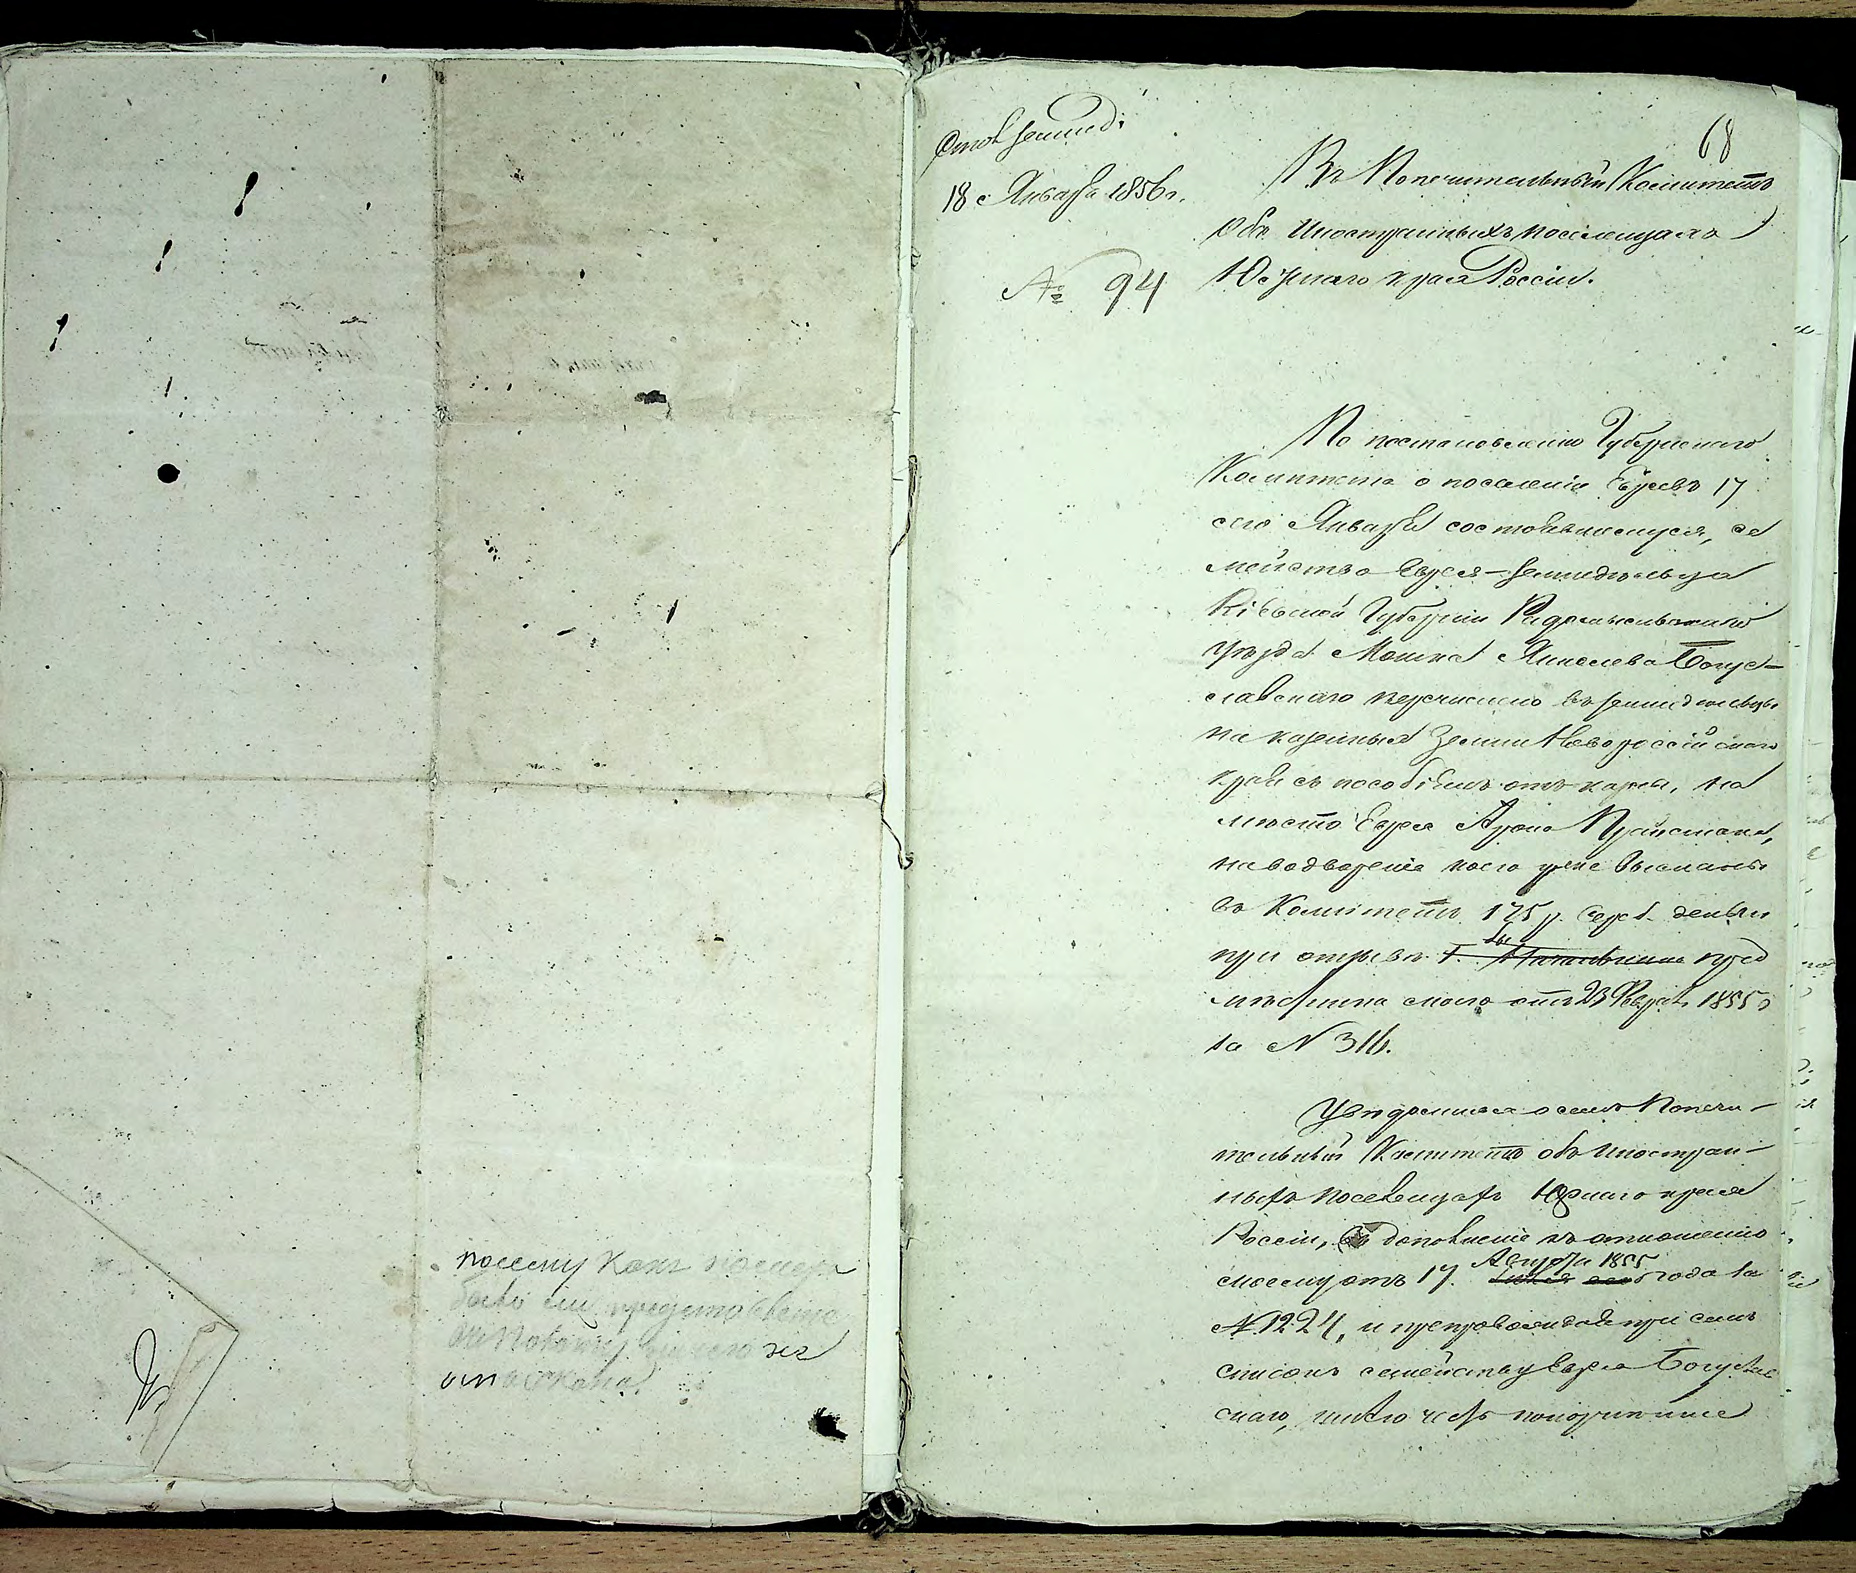 посему какъ
было ему
не
68
18 Января 1856 г.
№ 94
Въ Попечительный Комитетъ
Объ Иностранныхъ поселенцахъ
Южнаго края Россіи.
По постановленію Губернскаго
Комитета о поселеніи Евреевъ 17
сего Января состоявшемуся, се
мейство Еврея-земледѣльца
Кіевской Губерніи Радомысльскаго
уѣзда Мошка Янкелева Богус-
лавскаго перечислено въ земледѣльцы
на казенныя Земли Новороссійскаго
края съ пособіемъ отъ казны, на
мѣсто Еврея Арона
на водвореніе коего уже высланы
въ Комитетъ 175 р. сереб. деньги
при отзывѣ Г. пред
мѣстника моего отъ 23 Феврал. 1855 г
за № 316.
Увѣдомляя о семъ Попечи-
тельный Комитетъ объ иностран-
ныхъ поселенцахъ Южнаго края
Россіи, въ дополненіе къ отношенію
моему отъ 17. Августа 1855 года за
№ 1224, и препровождая при семъ
списокъ семейству Еврея Богуслав
скаго, имѣю честь покорнѣйше